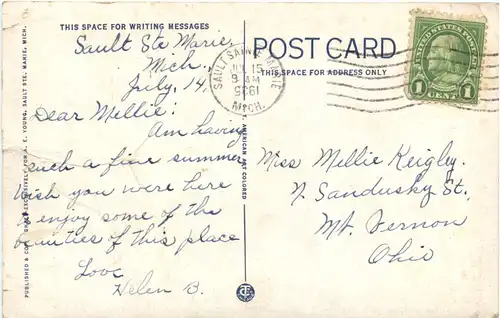 THIS SPACE FOR WRITING MESSAGES
Sault Ste Marie
Mich.
July, 14,
Dear Mellie:
Am having
such a fine summer
Wish you were here
to enjoy some of the
beauties of this place
Love
Helen B.
PUBLISHED & COPYRIGHTED EXCLUSIVELY FOR A. E. YOUNG, SAULT STE. MARIE, MICH.
C. T. AMERICAN ART COLORED
POST CARD
THIS SPACE FOR ADDRESS ONLY
SAULT SAINTE MARIE
JUL 15
MICH.
UNITED STATES POSTAGE
1 CENT 1
Miss Mellie Keigley.
N. Sandusky St.
Mt. Vernon
Ohio